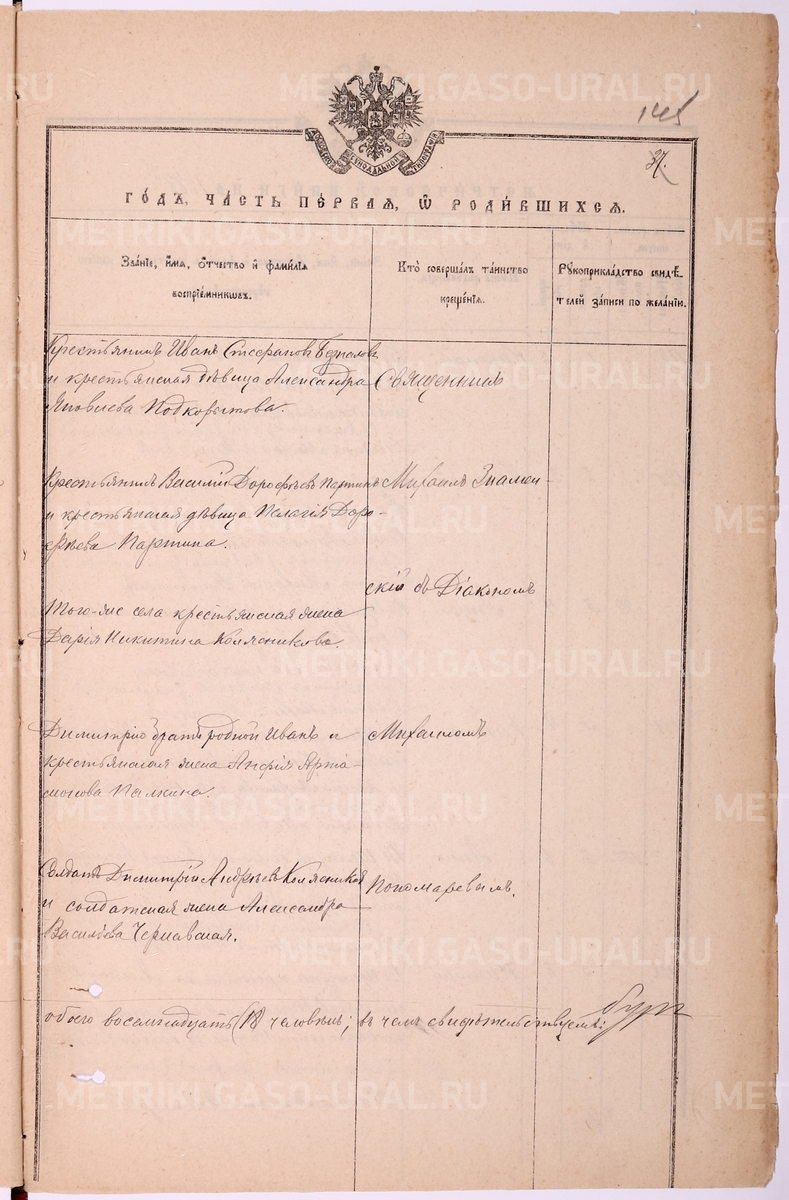 METRIKI.GASO-URAL.RU
145
37.
СѴНОДАЛЬНОЙ
ГОДЪ, ЧАСТЬ ПЕРВАЯ, Ѡ РОДИВШИХСЯ.
Званіе, имя, отчество и фамилія
воспріемниковъ.
Кто совершалъ таинство
крещенія.
Рукоприкладство свидѣ-
телей записи по желанію.
Крестьянинъ Иванъ Стефановъ
и крестьянская дѣвица Александра
Яковлева Подкорытова.
Священникъ
Крестьянинъ Василій Дорофѣевъ Партинъ
и крестьянская дѣвица Пелагія Доро-
фѣева Партина.
Михаилъ Знамен-
скій съ Діакономъ
Того-же села крестьянская жена
Дарія Никитина Колясникова.
Димитрію братъ родной Иванъ и
крестьянская жена Анфія Арта-
монова Палкина.
Михаиломъ
Солдатъ Димитрій Андреевъ Колясниковъ
и солдатская жена Александра
Васильева Чернавская.
Пономаревымъ.
обоего восемнадцать (18) человѣкъ; въ чемъ свидѣтельствуемъ: